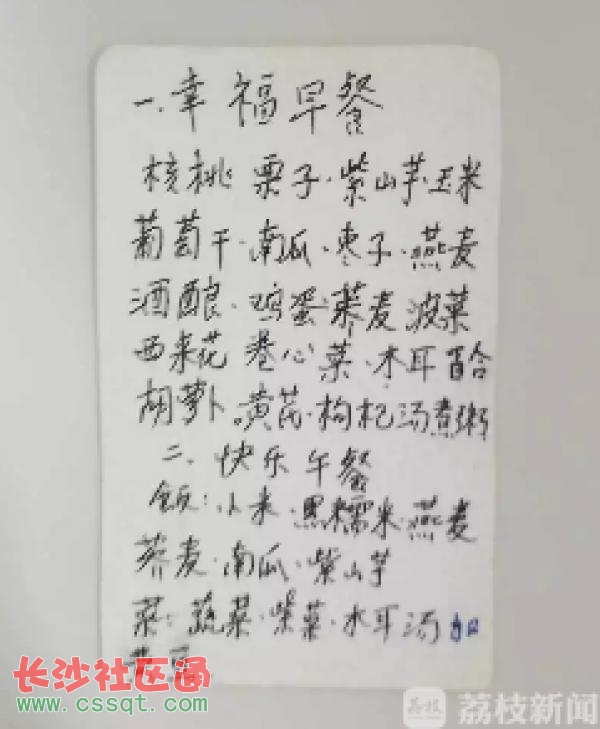 一.幸福早餐
核桃 栗子·紫山芋·玉米
葡萄干·南瓜·枣子·燕麦
酒酿·鸡蛋·荞麦 菠菜
西蓝花 卷心菜·木耳 百合
胡萝卜 黄芪·枸杞汤煮粥
二.快乐午餐
饭:小米·黑糯米·燕麦
荞麦·南瓜·紫山芋
菜:蔬菜·紫菜·木耳汤 加
长沙社区通
www.cssqt.com
荔枝
荔枝新闻